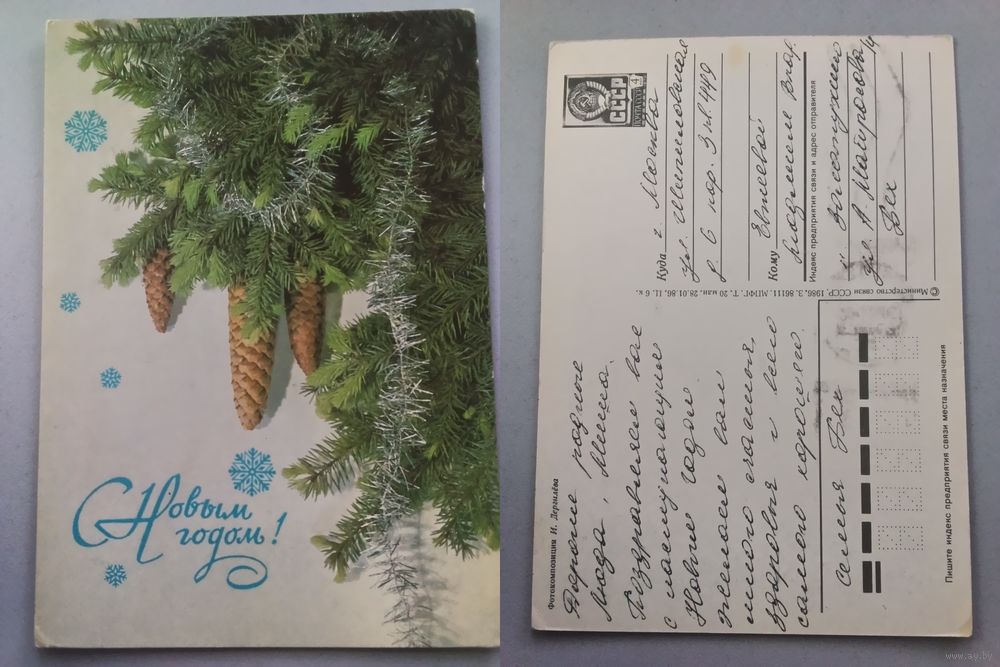 С Новым
годом!
Фотокомпозиция И. Дергилёва
Дорогие родные
Люда, Миша.
Поздравляем вас
с наступающим
Новым годом
желаем вам
много счастья,
здоровья и всего
самого хорошего.
семья Бех
СССР
4
Куда г. Москва
ул.
д. 6 кор. 3 кв. 449
Кому Евтеевой
Людмиле Влад.
Индекс предприятия связи и адрес отправителя
ул. А. Майорова 14
Бех
© Министерство связи СССР, 1986. З. 86111. МПФГ. Т. 20 млн. 28.01.86. Ц. 6 к.
Пишите индекс предприятия связи места назначения
www.ay.by